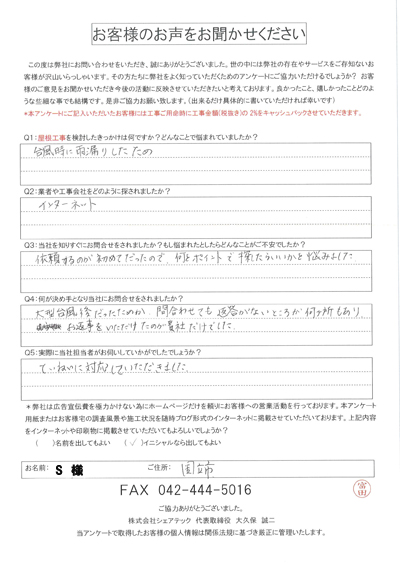 お客様のお声をお聞かせください
この度は弊社にお問い合わせをいただき、誠にありがとうございました。世の中には弊社の存在やサービスをご存知ないお
客様が沢山いらっしゃいます。その方たちに弊社をよく知っていただくためのアンケートにご協力いただけるでしょうか? お客
様のご意見をお聞かせいただき今後の活動に反映させていただきたいと考えております。良かったこと、嬉しかったことどのよ
うな些細な事でも結構です。是非ご協力お願い致します。(出来るだけ具体的に書いていただければ幸いです)
*本アンケートにご記入いただいたお客様には工事ご用命時に工事金額(税抜き)の2%をキャッシュバックさせていただきます。
Q1:屋根工事を検討したきっかけは何ですか?どんなことで悩まれていましたか?
台風時に雨漏りしたため
Q2:業者や工事会社をどのように探されましたか?
インターネット
Q3:当社を知りすぐにお問合せをされましたか?もし悩まれたとしたらどんなことがご不安でしたか?
依頼するのが初めてだったので、何をポイントで探したらいいかを悩みました
Q4:何が決め手となり当社にお問合せをされましたか?
大型台風後だったためか、問合わせても返答がないところが何ヶ所もあり
お返事をいただけたのが貴社だけでした。
Q5:実際に当社担当者がお伺いしていかがでしたでしょうか?
ていねいに対応していただきました
*弊社は広告宣伝費を極力かけない為にホームページだけを頼りにお客様への営業活動を行っております。本アンケート
用紙またはお客様宅の調査風景や施工状況を随時ブログ形式のインターネットに掲載させていただいております。上記内容
をインターネットや印刷物に掲載させていただいてもよろしいでしょうか?
( )名前を出してもよい (✓)イニシャルなら出してもよい
お名前: S 様 ご住所: 国立市
FAX 042-444-5016
富田
ご協力ありがとうございました。
株式会社シェアテック 代表取締役 大久保 誠二
当アンケートで取得したお客様の個人情報は関係法規に基づき厳正に管理いたします。